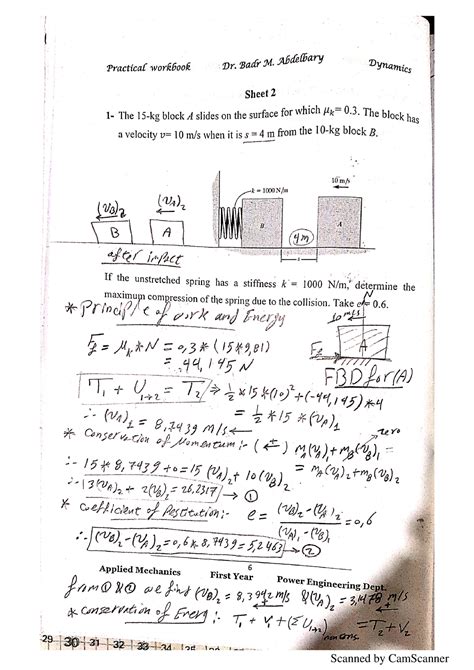 Practical workbook Dr. Badr M. Abdelbary Dynamics
Sheet 2
1- The 15-kg block A slides on the surface for which μk= 0.3. The block has
a velocity v= 10 m/s when it is s = 4 m from the 10-kg block B.
10 m/s
k = 1000 N/m
(VB)2 (VA)2
B A B 4m A
after impact
If the unstretched spring has a stiffness k = 1000 N/m, determine the
maximum compression of the spring due to the collision. Take e = 0.6.
* Principle of work and Energy
10 m/s
N
A
Ff
Ff = μk * N = 0,3 * (15*9,81)
= 44,145 N
FBD for (A)
T1 + U1→2 = T2 ⇒ ½*15*(10)² + (-44,145)*4
= ½ *15*(VA)1
∴ (VA)1 = 8,7439 m/s ←
zero
* Conservation of Momentum:- (←+) mA(VA)1 + mB(VB)1
= mA(VA)2 + mB(VB)2
∴ 15*8,7439+0 = 15(VA)2 + 10(VB)2
∴ 3(VA)2 + 2(VB)2 = 26,2317 → ①
* coefficient of Restitution:- e = (VB)2-(VA)2 / (VA)1-(VB)1 = 0,6
∴ (VB)2-(VA)2 = 0,6*8,7439 = 5,2463 → ②
6
Applied Mechanics First Year Power Engineering Dept.
from ① & ② we find (VB)2 = 8,3942 m/s & (VA)2 = 3,1478 m/s
* conservation of Energy:- T1 + V1 + (ΣU1→2)noncons. = T2 + V2
29 30 31 32 33 34 35
Scanned by CamScanner